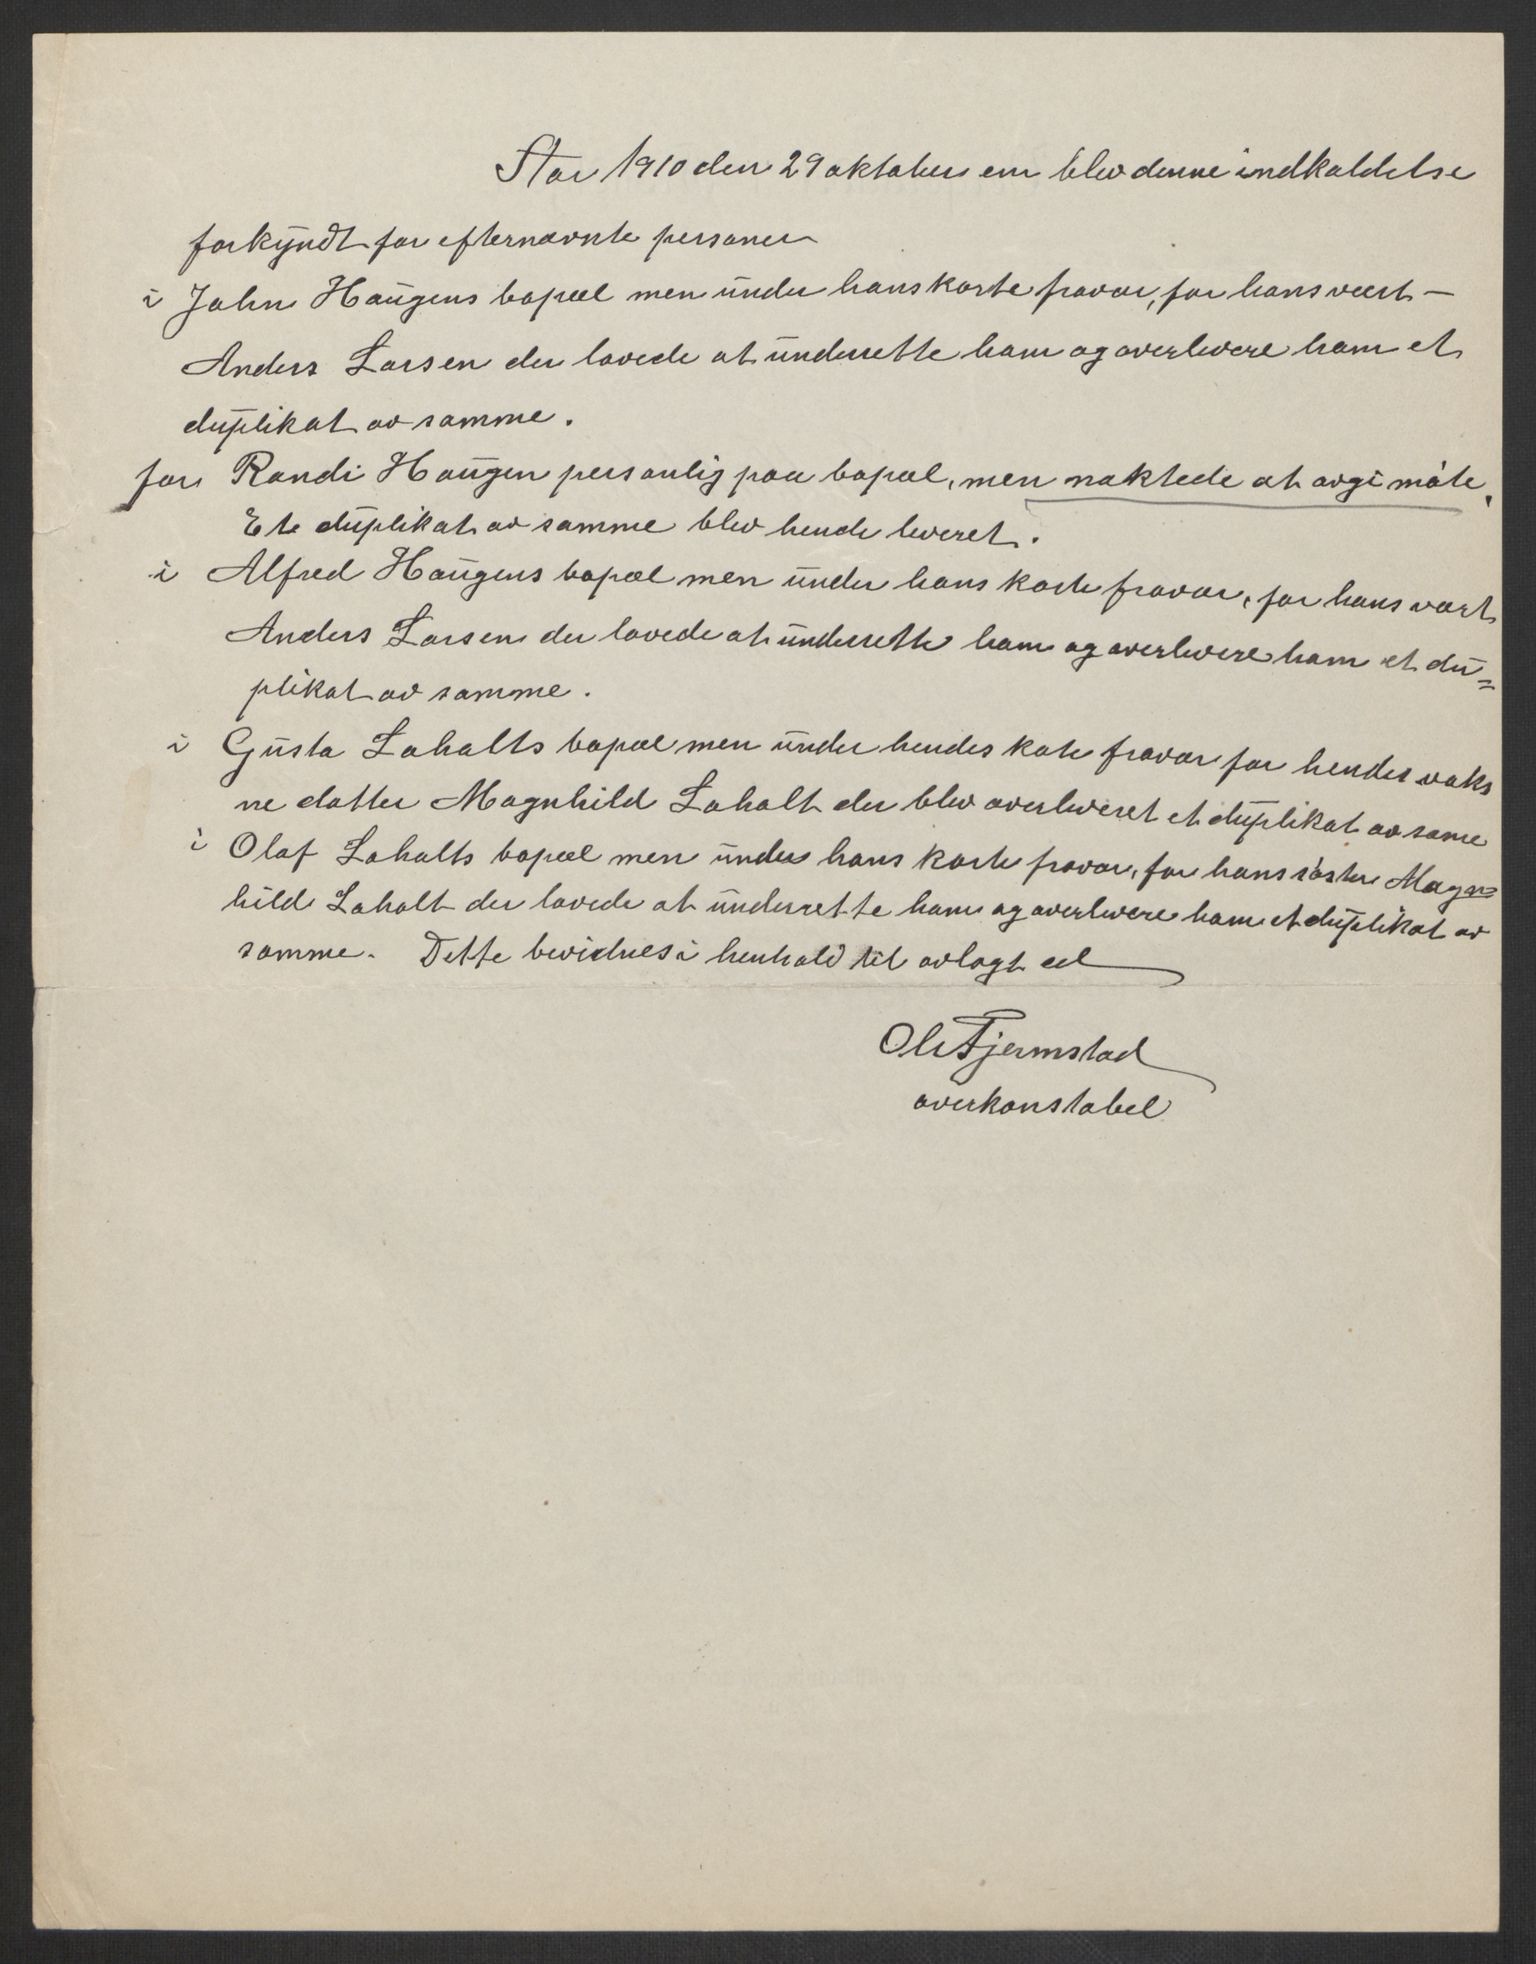 Aar 1910 den 29 oktober em blev denne indkaldelse
forkyndt for efternævnte personer
i John Haugens bopæl men under hans korte fravær, for hans vært –
Anders Larsen der lovede at underrette ham og overlevere ham et
duplikat av samme.
for Randi Haugen personlig paa bopæl, men næktede at avgi møte,
Ete duplikat av samme blev hende leveret.
i Alfred Haugens bopæl men under hans korte fravær, for hans vært
Anders Larsen der lovede at underrette ham og overlevere ham et du=
plikat av samme.
i Gusta Loholts bopæl men under hendes kote fravær for hendes voks
ne datter Magnhild Loholt der blev overleveret et duplikat av same
i Olaf Loholts bopæl men under hans korte fravær, for hans søster Magn=
hild Loholt der lovede at underrette ham og overlevere ham et duplikat av
samme. Dette bevidnes i henhold til avlagt ed
Ole Fjermstad
overkonstabel